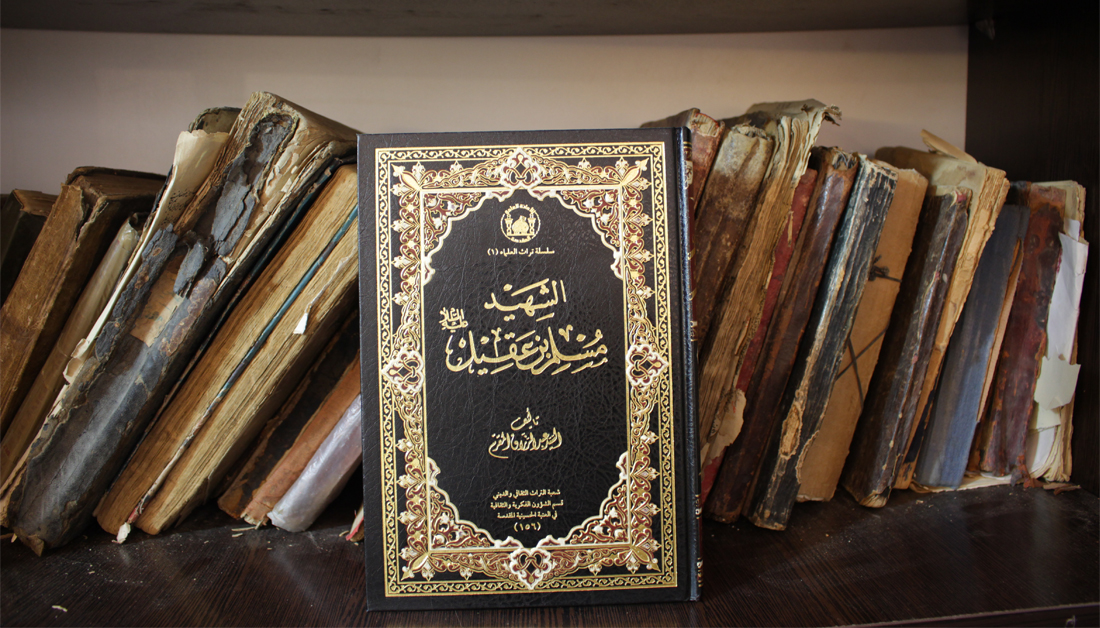 سلسلة تراث العلماء (١)
الشهيد
مسلم بن عقيل
عليه السلام
تأليف
السيد عبد الرزاق المقرم
شعبة التراث الثقافي والديني
قسم الشؤون الفكرية والثقافية
في العتبة الحسينية المقدسة
(١٥٦)